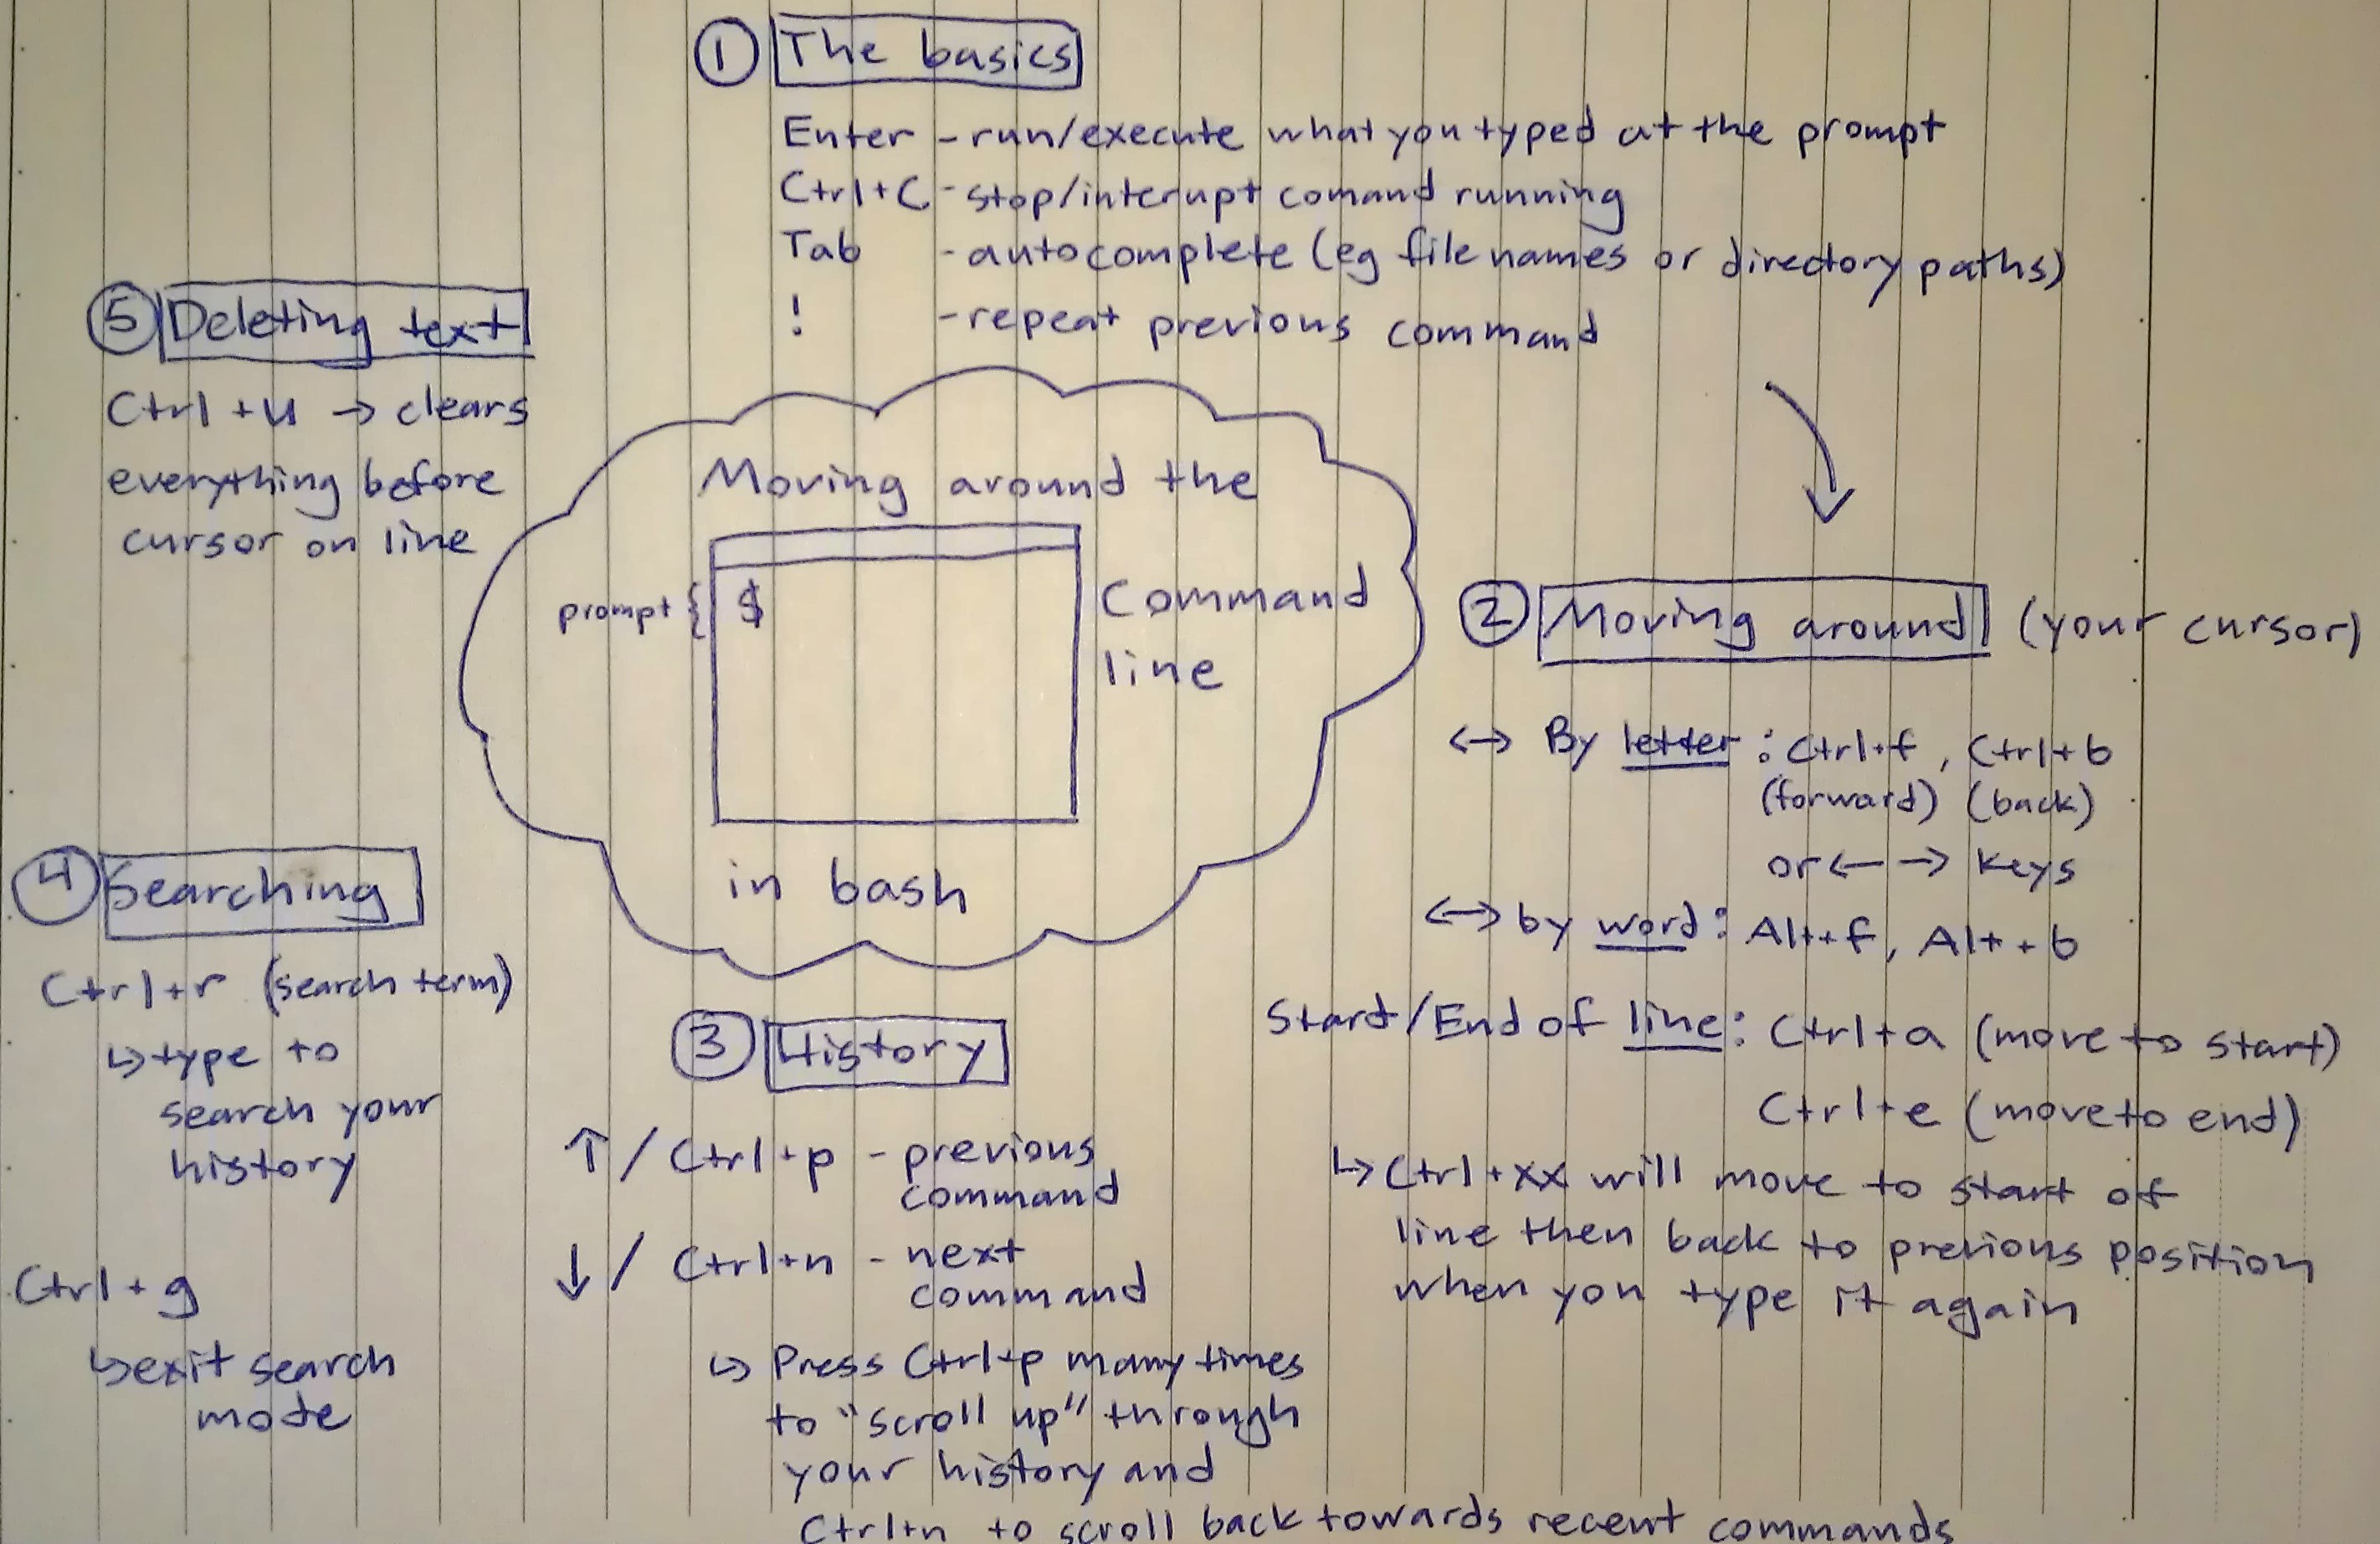 ① The basics
Enter - run/execute what you typed at the prompt
Ctrl+C - stop/interupt comand running
Tab - autocomplete (eg file names or directory paths)
! - repeat previous command
Moving around the
prompt { $
Command
line
in bash
② Moving around (your cursor)
↔ By letter: Ctrl+f, Ctrl+b
(forward) (back)
or ← → keys
↔ by word: Alt+f, Alt+b
Start/End of line: Ctrl+a (move to start)
Ctrl+e (move to end)
↳ Ctrl+xx will move to start of
line then back to previous position
when you type it again
③ History
↑ / Ctrl+p - previous
command
↓ / Ctrl+n - next
command
↳ Press Ctrl+p many times
to "scroll up" through
your history and
Ctrl+n to scroll back towards recent commands
④ Searching
Ctrl+r (search term)
↳ type to
search your
history
Ctrl+g
↳ exit search
mode
⑤ Deleting text
Ctrl+u → clears
everything before
cursor on line